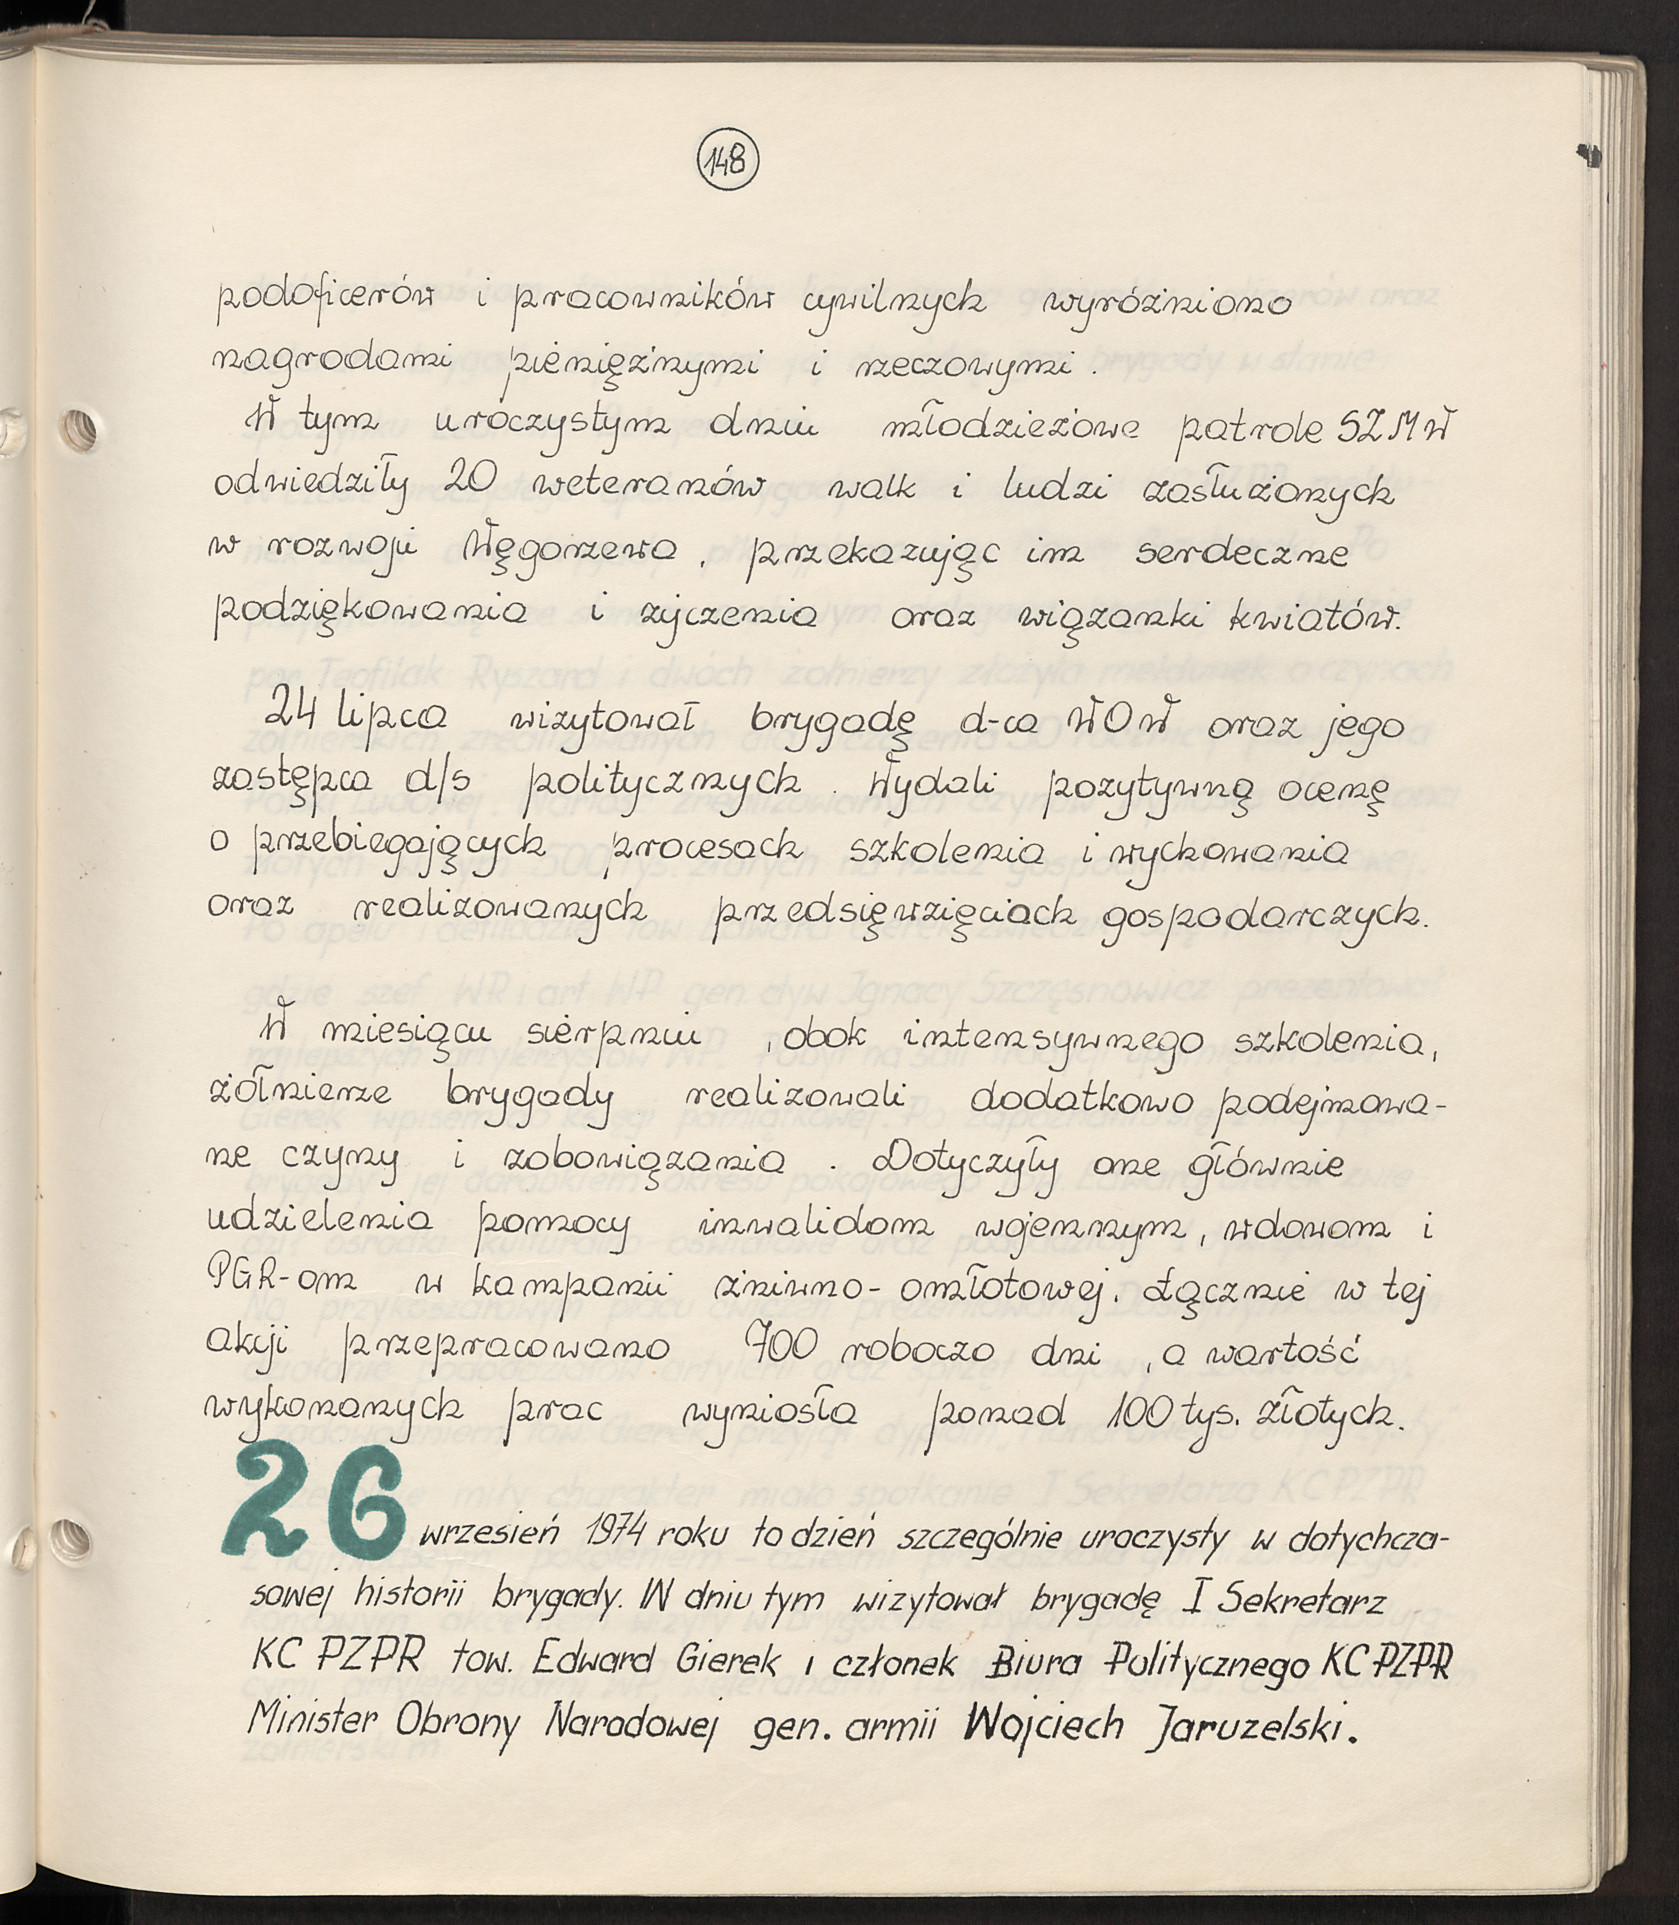 148
podoficerów i pracowników cywilnych wyróżniono
nagrodami pieniężnymi i rzeczowymi.
W tym uroczystym dniu młodzieżowe patrole SZMW
odwiedziły 20 weteranów walk i ludzi zasłużonych
w rozwoju Węgorzewa, przekazując im serdeczne
podziękowania i życzenia oraz wiązanki kwiatów.
24 lipca wizytował brygadę d-ca WOW oraz jego
zastępca d/s politycznych. Wydali pozytywną ocenę
o przebiegających procesach szkolenia i wychowania
oraz realizowanych przedsięwzięciach gospodarczych.
W miesiącu sierpniu, obok intensywnego szkolenia,
żołnierze brygady realizowali dodatkowo podejmowa-
ne czyny i zobowiązania. Dotyczyły one głównie
udzielenia pomocy inwalidom wojennym, wdowom i
PGR-om w kampanii żniwno-omłotowej. Łącznie w tej
akcji przepracowano 700 roboczo dni, a wartość
wykonanych prac wyniosła ponad 100 tys. złotych.
26 wrzesień 1974 roku to dzień szczególnie uroczysty w dotychcza-
sowej historii brygady. W dniu tym wizytował brygadę I Sekretarz
KC PZPR tow. Edward Gierek i członek Biura Politycznego KC PZPR
Minister Obrony Narodowej gen. armii Wojciech Jaruzelski.